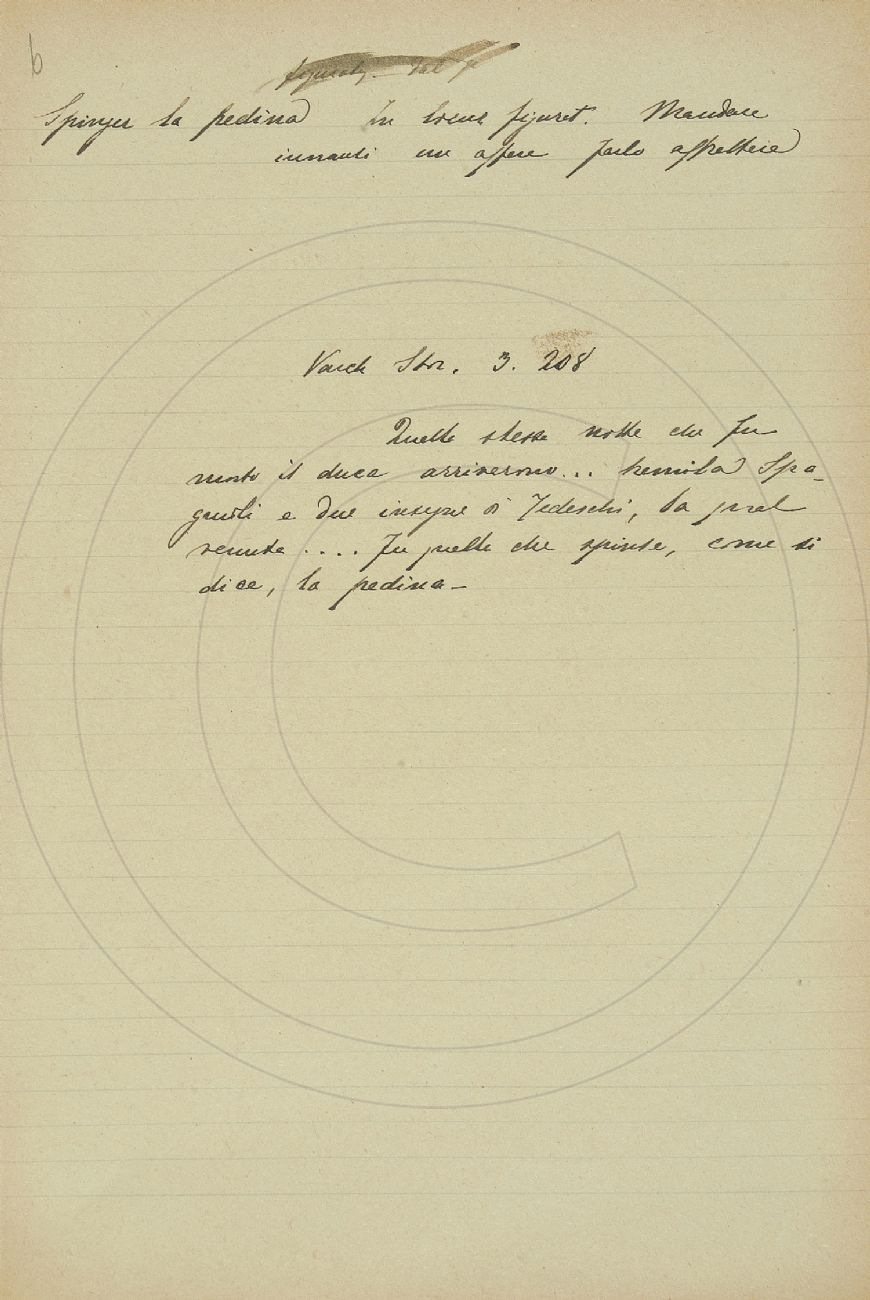 6
Spinger la pedina In locuz figurat. Mandare
innanzi un affare farlo affrettare
Varch Stor. 3. 208
Quella stessa notte che fu
morto il duca arriverono... tremila Spa-
gnuoli e due insegne di Tedeschi, la qual
venuta .... fu quella che spinse, come si
dice, la pedina -